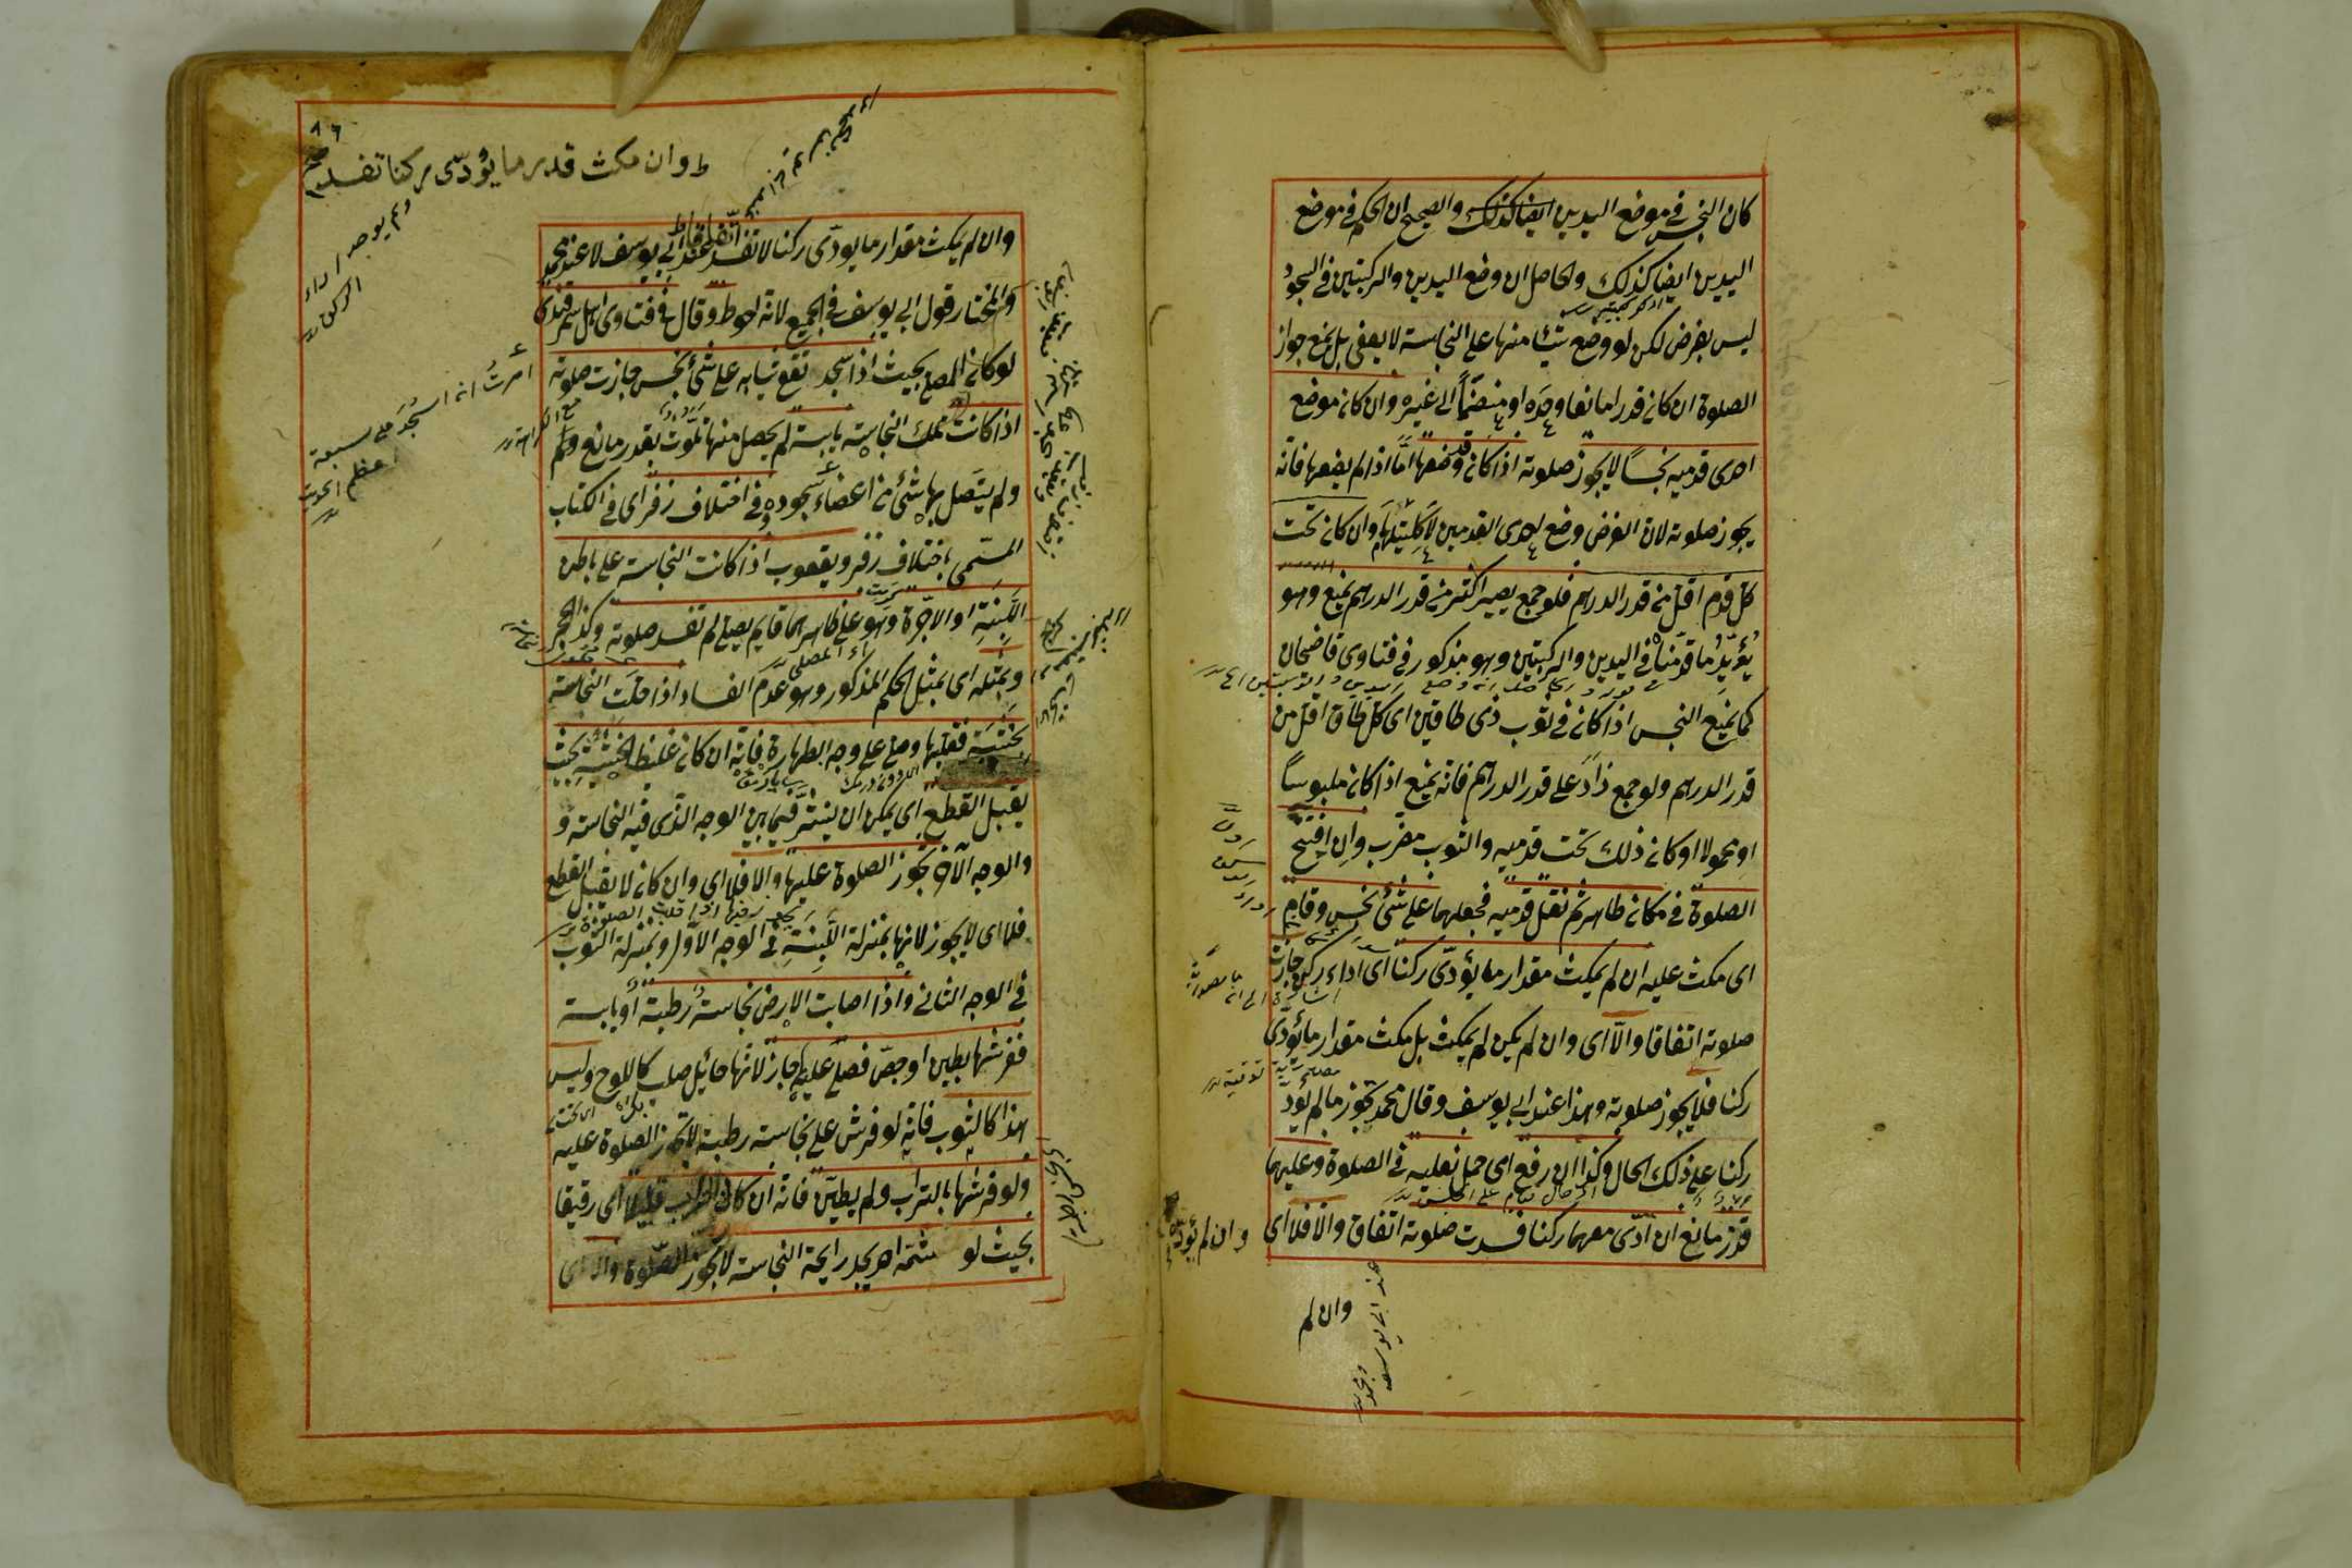 كان النجس في موضع اليدين ايضا كذلك والصحيح ان الحكم في موضع
اليدين ايضا كذلك والحاصل ان وضع اليدين والركبتين في السجود
ليس بفرض لكن لو وضع شيئا منها على النجاسة لا يعفى بل يمنع جواز
الصلوة ان كان قدرا مانعا وحده او منضما الى غيره وان كان موضع
احدى قدميه نجسا لا يجوز صلوته اذا كان وضعها امّا اذا لم يضعها فانه
يجوز صلوته لان الفرض وضع احدى القدمين لا كلتيهما وان كان تحت
كل قدم اقل من قدر الدرهم فلو جمع يصير اكثر من قدر الدرهم يمنع وهو
يؤيّد ما قدّمنا في اليدين والركبتين وهو مذكور في فتاوى قاضيخان
كما يمنع النجس اذا كان في ثوب ذى طاقين اى كل طاق اقل من
قدر الدرهم ولو جمع زاد على قدر الدرهم فانه يمنع اذا كان ملبوسا
او محمولا او كان ذلك تحت قدميه والثوب مضرب وان افتتح
الصلوة في مكان طاهر ثم نقل قدميه فجعلهما على شئ نجس وقام
اى مكث عليه ان لم يمكث مقدار ما يؤدّى ركنا اى اداء ركن جازت
صلوته اتفاقا والّا اى وان لم يكن لم يمكث بل مكث مقدار ما يؤدّى
ركنا فلا يجوز صلوته وهذا عند ابى يوسف وقال محمد تجوز ما لم يؤدّ
ركنا على ذلك الحال وكذا ان رفع اى حمل نعليه في الصلوة وعليهما
قذر مانع ان ادّى معهما ركنا فسدت صلوته اتفاق والّا فلا اى
وان لم يؤدّ
وان لم
عند ابى يوسف
ومحمد
ط وان مكث قدر ما يؤدّى ركنا تفسد
ولم يوجد اداء
الركن
وان لم يمكث مقدار ما يودّى ركنا لا تفسد عند ابى يوسف لا عند محمد
والمختار قول ابى يوسف في الجميع لانه احوط وقال في فتاوى اهل سمرقند
لو كان المصلى بحيث اذا سجد تقع ثيابه على شئ نجس جازت صلوته
اذا كانت تلك النجاسة يابسة لم يحصل منها تلوّث بقدر مانع ولم
ولم يتصل بها شئ من اعضاء سجوده وفي اختلاف زفر اى في الكتاب
المسمّى باختلاف زفر ويعقوب اذا كانت النجاسة على باطن
اللَّبِنَة او الاجرّة وهو على ظاهرهما قايم يصلى لم تفسد صلوته وكذا الحجر
وبمثله اى بمثل الحكم المذكور وهو عدم الفساد اذا حلّت النجاسة
بخشبة فقلبها وصلى على وجه الطهارة فانه ان كان غلظ الخشبة بحيث
يقبل القطع اى يمكن ان ينشر فيما بين الوجه الذى فيه النجاسة و
والوجه الآخر تجوز الصلوة عليها والا فلا اى وان كان لا يقبل القطع
فلا اى لا يجوز لانها بمنزلة اللَّبِنَة في الوجه الاوّل وبمنزلة الثوب
في الوجه الثانى واذا اصابت الارض نجاسة رطبة او يابسة
ففرشها بطين او جصّ فصلى عليه جاز لانها حائل صلب كاللوح وليس
هذا كالثوب فانه لو فرش على نجاسة رطبة لا تجوز الصلوة عليه
ولو فرشها بالتراب ولم يطيّن فانه ان كان التراب قليلا اى رقيقا
بحيث لو شمّه احد يجد رايحة النجاسة لا تجوز الصلوة والا اى
امرت ان اسجد على سبعة
اعظم الحديث